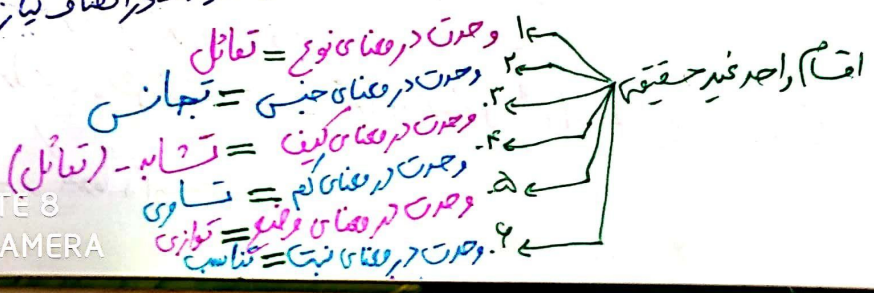 در انصاف نیاز
اقسام واحد غیر حقیقی
۱. وحدت در معنای نوع = تماثل
۲. وحدت در معنای جنس = تجانس
۳. وحدت در معنای کیف = تشابه - (تماثل)
۴. وحدت در معنای کم = تساوی
۵. وحدت در معنای وضع = توازی
۶. وحدت در معنای نسبت = تناسب
TE 8
AMERA